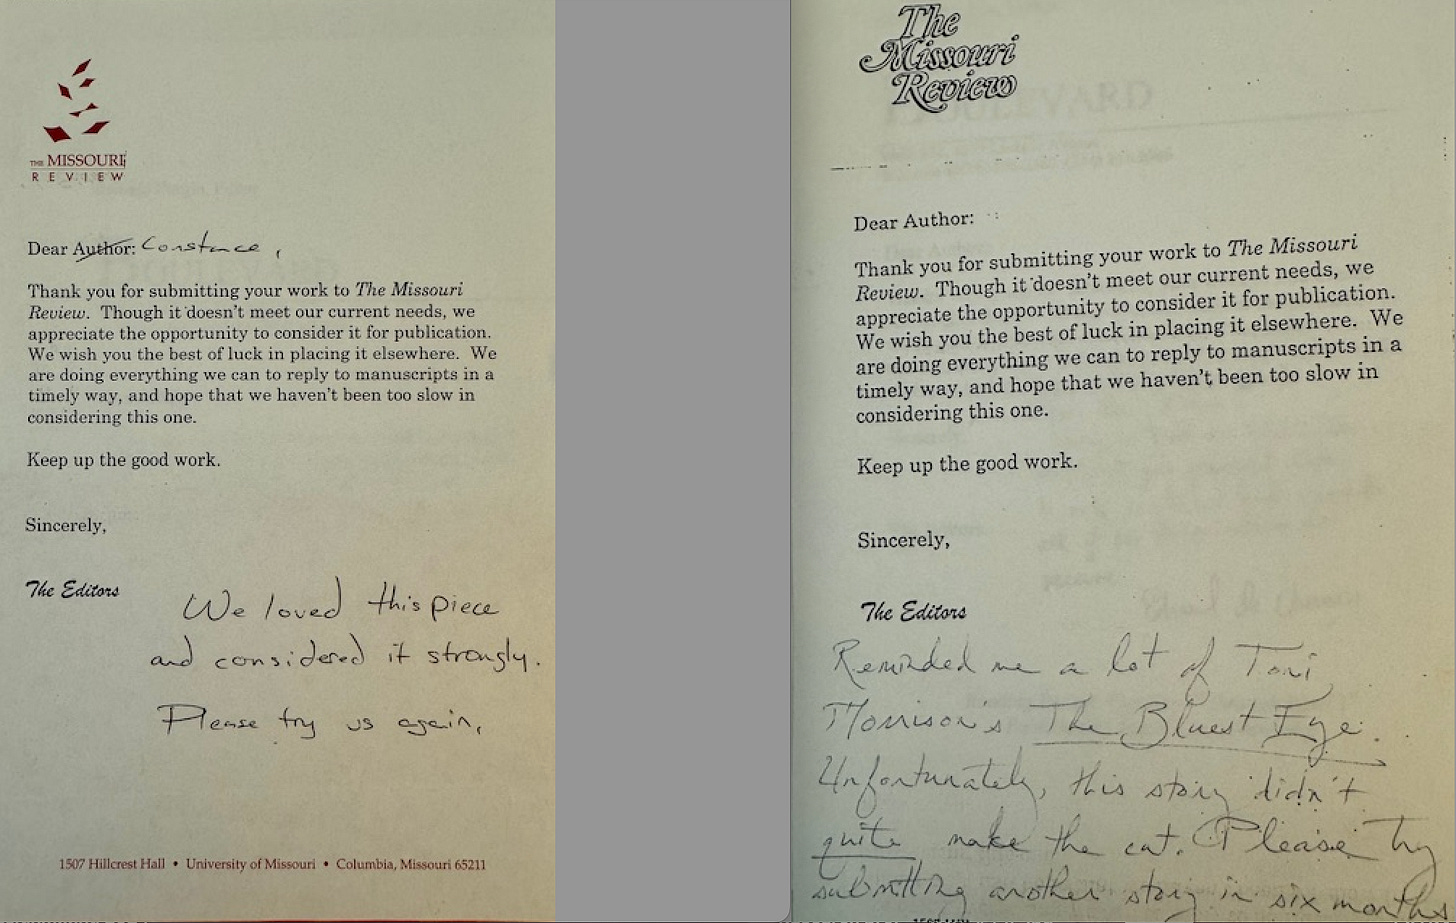 THE MISSOURI
REVIEW
Dear Author: Constance,
Thank you for submitting your work to The Missouri
Review. Though it doesn't meet our current needs, we
appreciate the opportunity to consider it for publication.
We wish you the best of luck in placing it elsewhere. We
are doing everything we can to reply to manuscripts in a
timely way, and hope that we haven't been too slow in
considering this one.
Keep up the good work.
Sincerely,
The Editors
We loved this piece
and considered it strongly.
Please try us again,
1507 Hillcrest Hall • University of Missouri • Columbia, Missouri 65211
The
Missouri
Review
Dear Author:
Thank you for submitting your work to The Missouri
Review. Though it doesn't meet our current needs, we
appreciate the opportunity to consider it for publication.
We wish you the best of luck in placing it elsewhere. We
are doing everything we can to reply to manuscripts in a
timely way, and hope that we haven't been too slow in
considering this one.
Keep up the good work.
Sincerely,
The Editors
Reminded me a lot of Toni
Morrison's The Bluest Eye.
Unfortunately, this story didn't
quite make the cut. Please try
submitting another story in six months